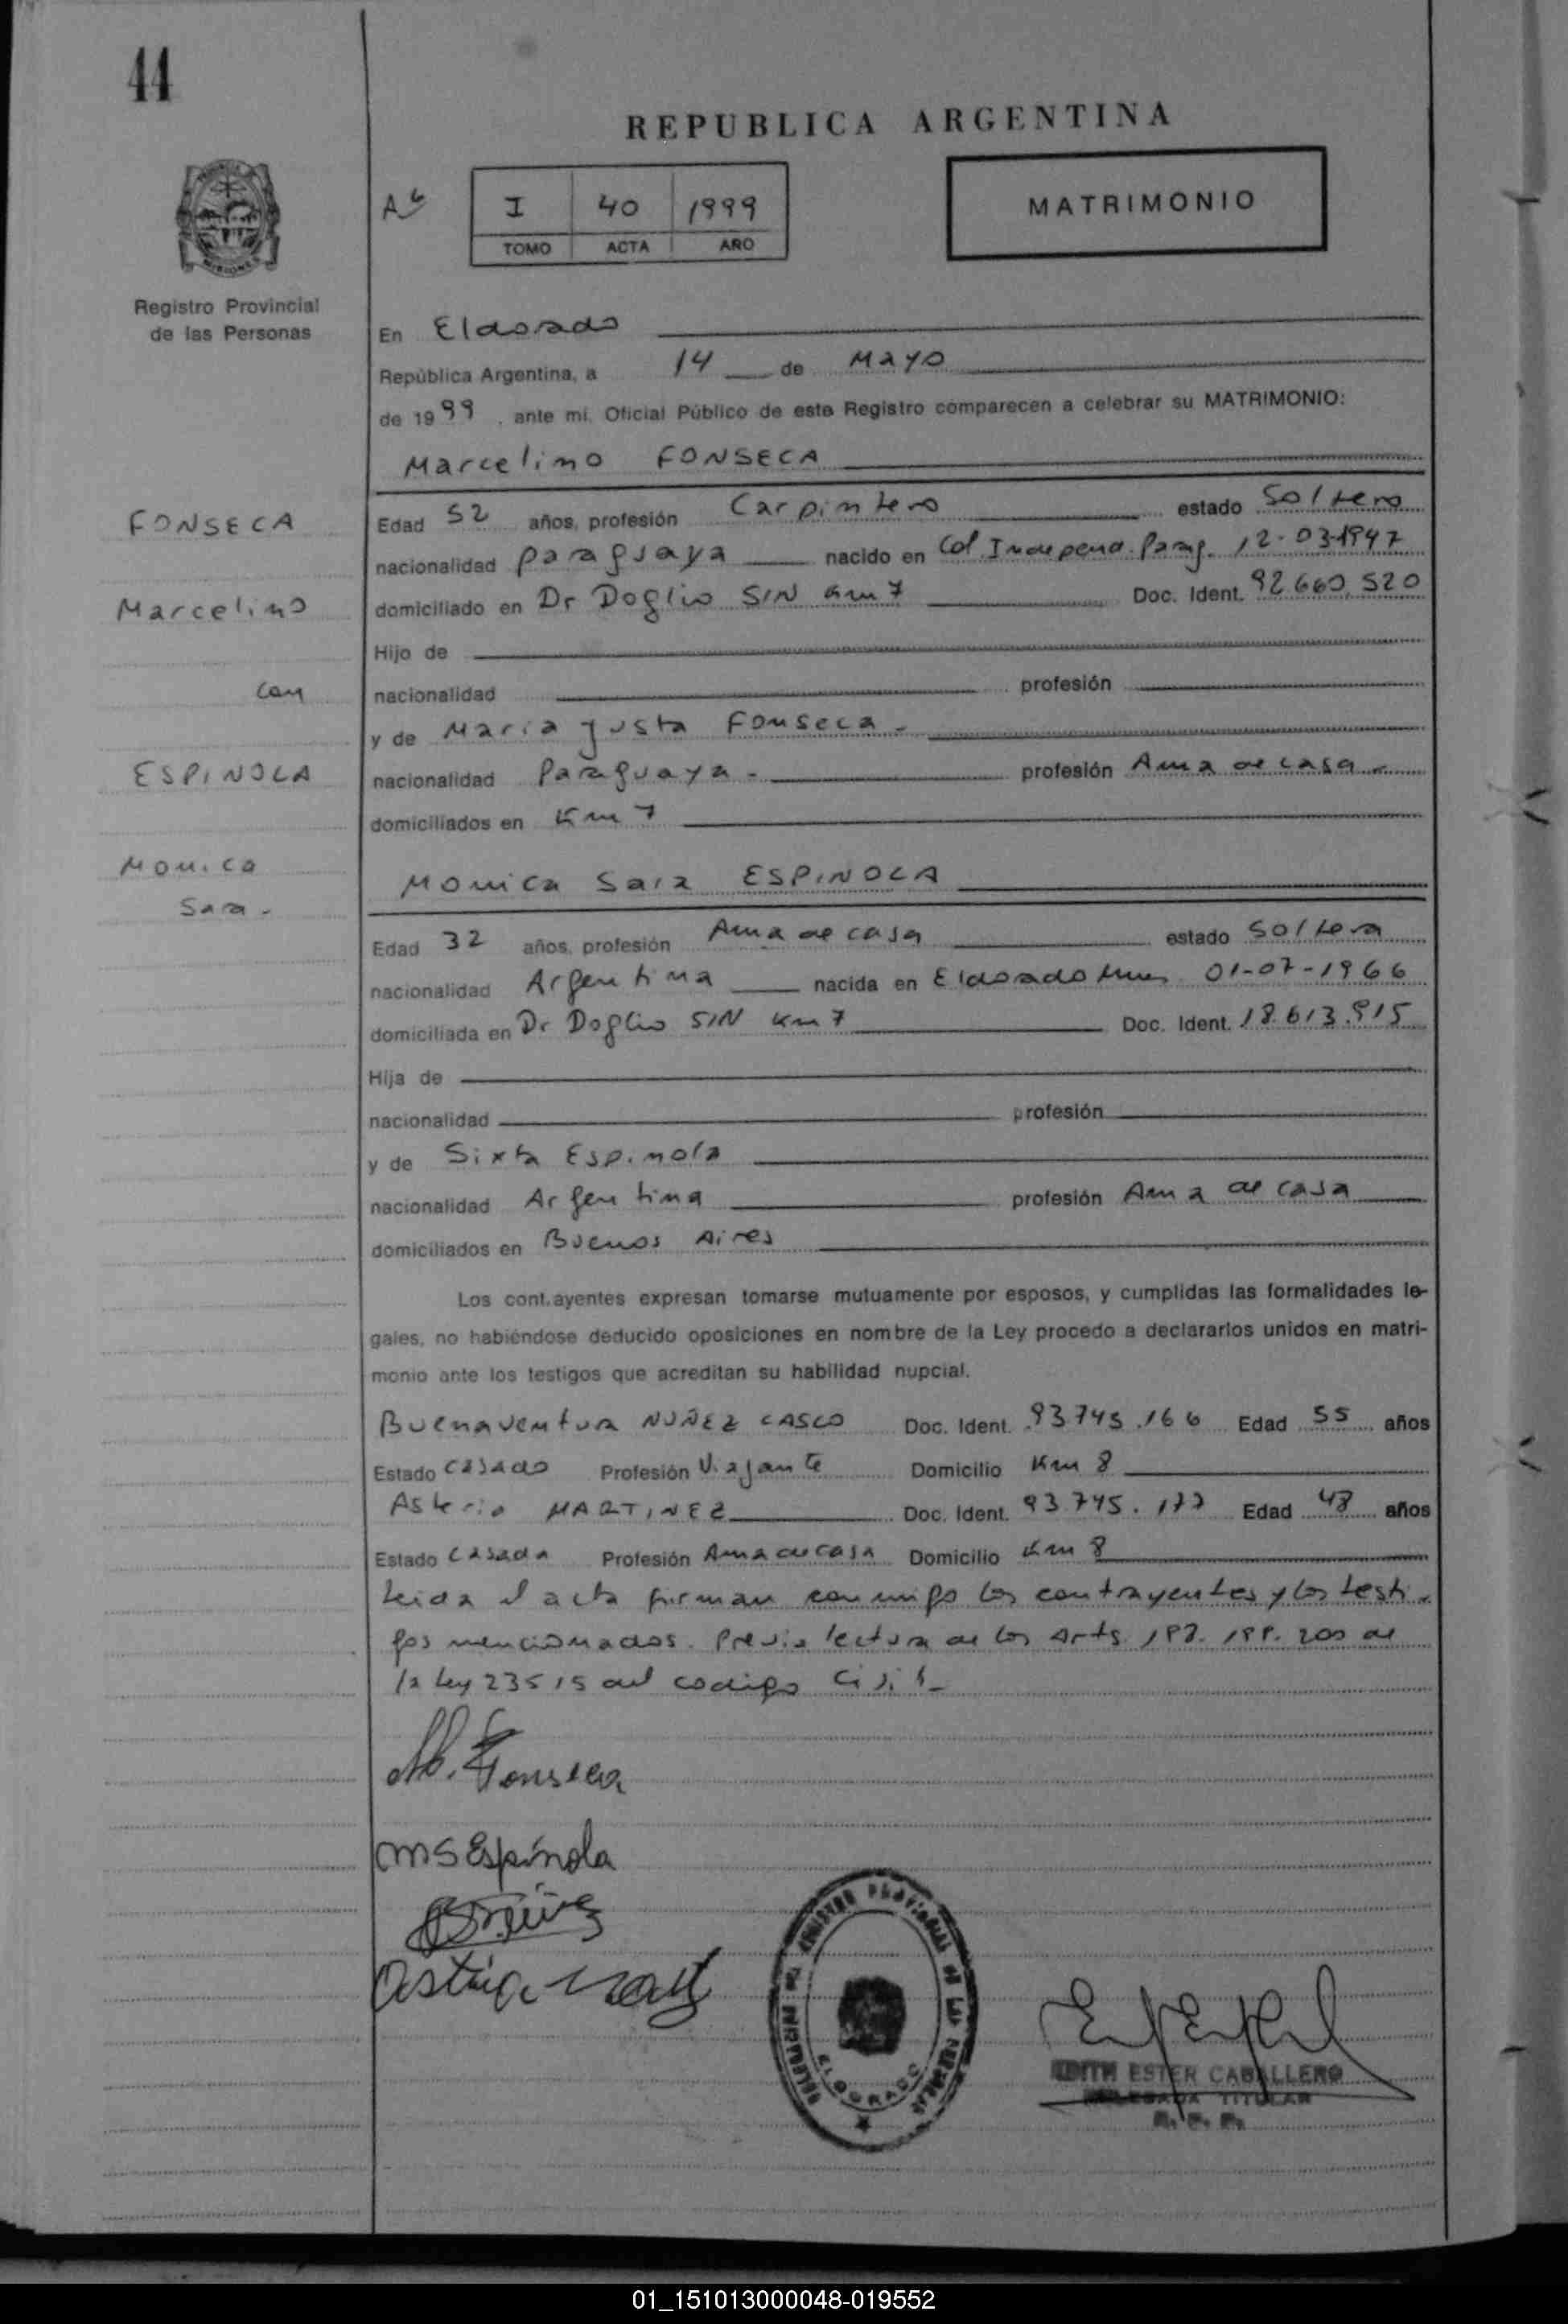 44
REPUBLICA ARGENTINA
I 40 1999
TOMO ACTA AÑO
MATRIMONIO
Registro Provincial
de las Personas
En Eldorado
República Argentina, a 14 de Mayo
de 1999, ante mi, Oficial Público de este Registro comparecen a celebrar su MATRIMONIO:
Marcelino FONSECA
FONSECA
Marcelino
con
ESPINOLA
Monica
Sara -
Edad 52 años, profesión Carpintero estado Soltero
nacionalidad paraguaya nacido en Col. Independ. Parag. 12-03-1947
domiciliado en Dr Doglio S/N Km 7 Doc. Ident. 92.660.520
Hijo de
nacionalidad profesión
y de Maria Justa Fonseca -
nacionalidad Paraguaya - profesión Ama de casa -
domiciliados en Km 7
Monica Sara ESPINOLA
Edad 32 años, profesión Ama de casa estado Soltera
nacionalidad Argentina nacida en Eldorado Mnes 01-07-1966
domiciliada en Dr Doglio S/N Km 7 Doc. Ident. 18.613.915
Hija de
nacionalidad profesión
y de Sixta Espinola
nacionalidad Argentina profesión Ama de casa
domiciliados en Buenos Aires
Los contrayentes expresan tomarse mutuamente por esposos, y cumplidas las formalidades le-
gales, no habiéndose deducido oposiciones en nombre de la Ley procedo a declararlos unidos en matri-
monio ante los testigos que acreditan su habilidad nupcial.
Buenaventura NUÑEZ CASCO Doc. Ident. 93.745.166 Edad 55 años
Estado Casado Profesión Viajante Domicilio Km 8
MARTINEZ Doc. Ident. 93.745.177 Edad 48 años
Estado Casada Profesión Ama de casa Domicilio Km 8
Leida el acta firman conmigo los contrayentes y los testi-
gos mencionados. Previa lectura de los Arts. 198. 199. 200 de
la Ley 23515 del codigo Civil -
M. Fonseca
MSEspínola
REGISTRO PROVINCIAL DE LAS PERSONAS
DELEGACION
ELDORADO
EDITH ESTER CABALLERO
DELEGADA TITULAR
R. P. P.
01_151013000048-019552